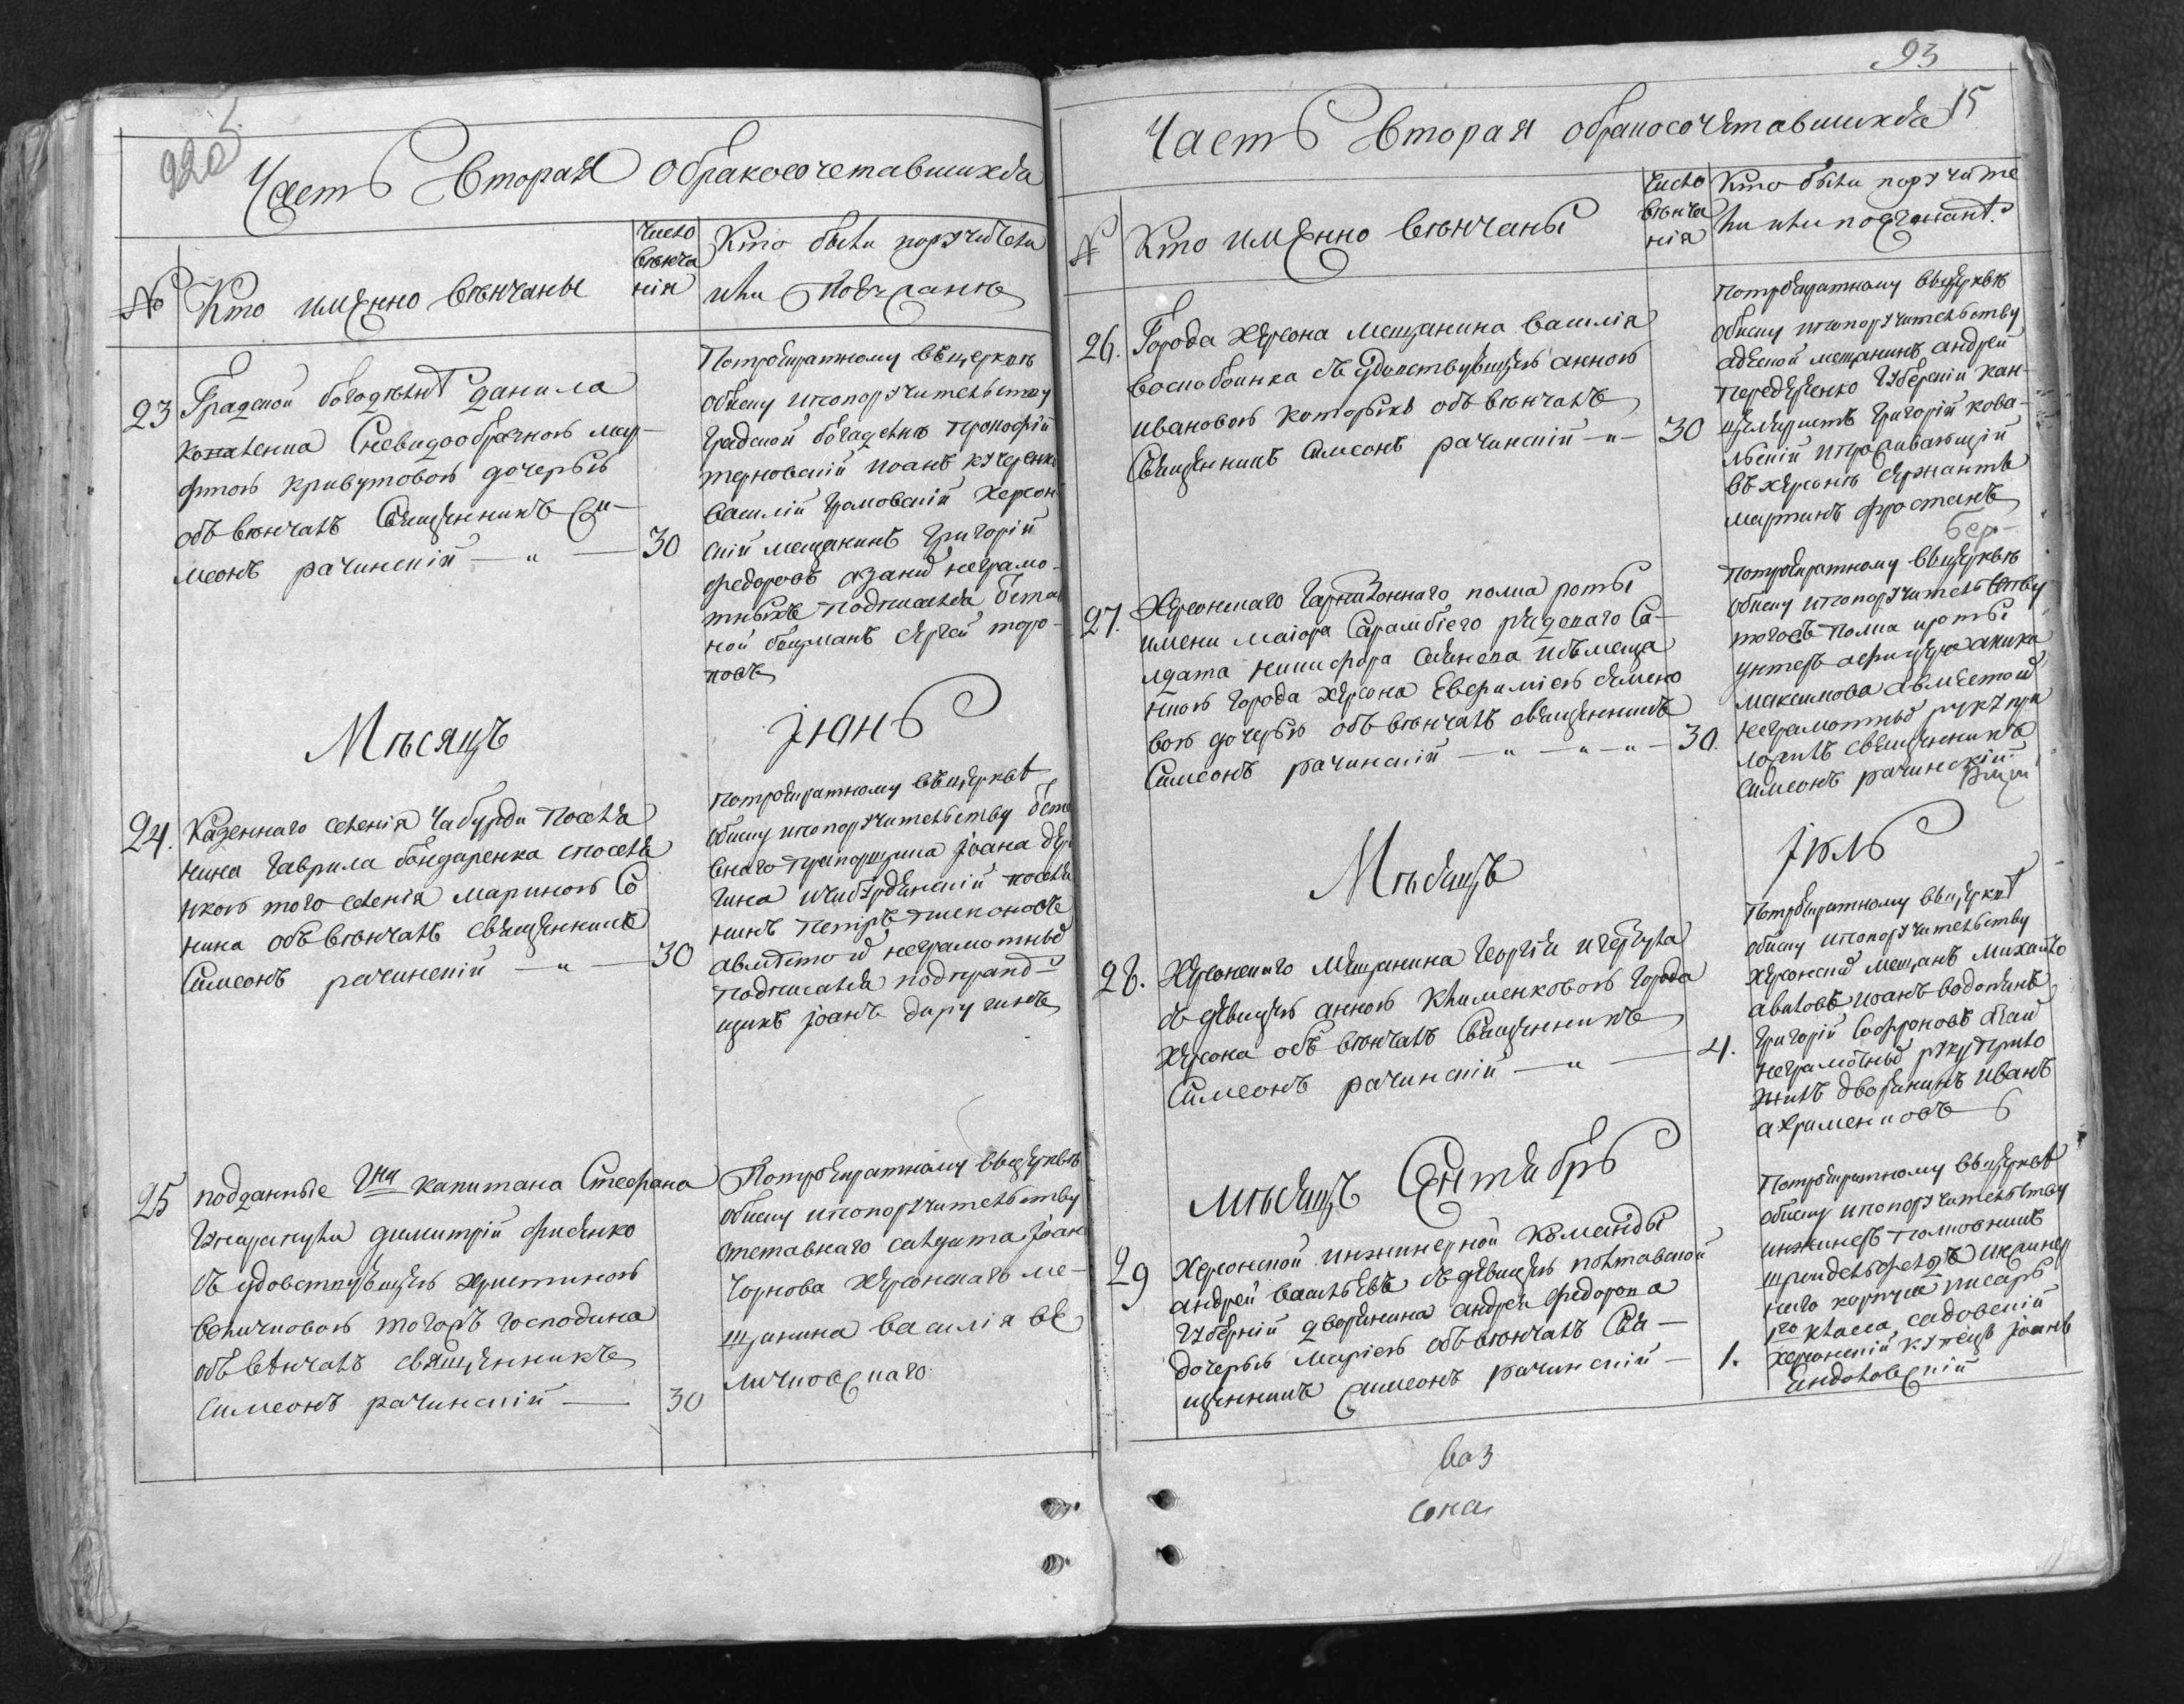 Часть Вторая обракосочетавшихся
№
Кто имѣнно вѣнчаны
Число
вѣнча
нія
Кто были поручители
или
23 Градской богадѣлнѣ данила
Снеѣвидообрачною мар-
фтою кривутовою дочерью
обвѣнчалъ Священникъ Си-
меонъ рачинскій — „ — 30
Потроекратному въцерквѣ
обыску ипопоручительству
градской богадѣлнѣ Прокофій
терновскій иоанъ кучеренко
василій громовскій херсон
скій мещанинъ григорій
федоровъ азанихъ неграмо-
тныхъ подписался Отстав
ной боцманъ сергей торо-
повъ
Мѣсяцъ
Іюнь
24. Казеннаго селенія Чабурди Поселя
нина гаврила бондаренка споселя
нкою того селенія мариною Со
нина обвѣнчалъ священникъ
Симеонъ рачинскій — „ — 30
Потроекратному въцерквѣ
обыску ипопоручительству Отста
внаго прапорщика Іоана
нинъ петръ тихоновъ
авмѣсто ихъ неграмотныхъ
подписался подпрапор-
щикъ Іоанъ
25 подданные Гна капитана Стефана
димитрій фисенко
съ удовствующею христиною
величковою тогожъ господина
обвѣнчалъ священникъ
Симеонъ рачинскій — 30
Потроекратному вьцерквѣ
обыску ипопоручительству
отставнаго салдата Іоан
Чорнова херсонскаго ме-
щанина василія ве
личковскаго
93
15
Часть Вторая обракосочѣтавшихся
№
Кто имѣнно вѣнчаны
Число
вѣнча
нія
Кто были поручите
ли или
26. Города Херсона мещанина василія
воскобоника съ удовствующею анною
ивановою которыхъ обвѣнчалъ
Священникъ Симеонъ рачинскій — „ — 30
Потроекратному вьцерквѣ
обыску ипопоручительству
одеской мещанинъ андрей
Передерѣенко губерскій кан-
целяристъ григорій кова-
льскій ипроживающій
въ херсонѣ сержантъ
мартинъ
27. Херсонскаго гарнизоннаго полка роты
имени маіора рядоваго Са-
лдата никифора семенова изъмеща
нкою города Херсона Евфиміею семено
вою дочерью обвѣнчалъ священникъ
Симеонъ рачинскій — „ — „ — „ — 30.
Потроекратному вьцерквѣ
обыску ипопоручительству
тогожъ полка ироты
унтеръ офицера аника
максимова авмѣсто ихъ
неграмотныхъ руку при
ложилъ священникъ
симеонъ рачинскій
Мѣсяцъ
Іюль
28. Херсонскаго мещанина георгія
съ дѣвицею анною клименковою города
Херсона обвѣнчалъ Священникъ
Симеонъ рачинскій — „ — 4.
Потроекратному вьцерквѣ
обыску ипопоручительству
херсонскихъ мещанъ михаило
авиловъ иоанъ водопянъ
григорій Софроновъ азаихъ
неграмотныхъ руку прило
жилъ дворянинъ иванъ
ахрименковъ
мѣсяцъ Сентябрь
29 Херсонской инжинерной команды
андрей васильевъ съ дѣвицею полтавской
губерній дворянина андрея федорова
дочерью маріею обвѣнчалъ Свя-
щенникъ Симеонъ рачинскій — 1.
Потроекратному вьцерквѣ
обыску ипопоручительству
инжинеръ полковникъ
иижинер
наго корпуса писарь
1го класса садовскій
херсонскій купецъ Іоанъ